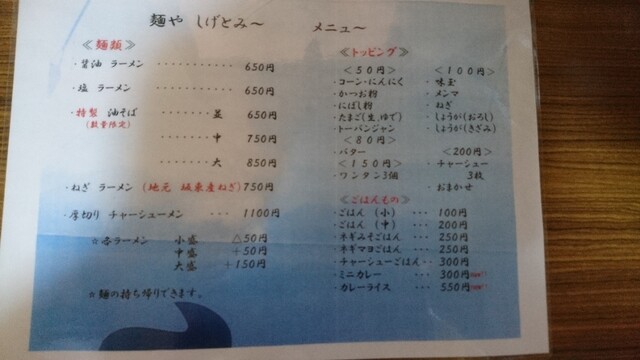 麺や しげとみ～ メニュ～
≪麺類≫
・醤油 ラーメン ・・・・・・・・・・・ 650円
・塩 ラーメン ・・・・・・・・・・・ 650円
・特製 油そば ・・・・・・・並 650円
(数量限定)
・・・・・・・中 750円
・・・・・・・大 850円
・ねぎ ラーメン (地元 坂東産ねぎ) 750円
・厚切り チャーシューメン ・・・ 1100円
☆各ラーメン 小盛 △50円
中盛 +50円
大盛 +150円
☆麺の持ち帰りできます。
≪トッピング≫
＜50円＞
・コーン・にんにく
・かつお粉
・にぼし粉
・たまご(生、ゆで)
・トーバンジャン
＜80円＞
・バター
＜150円＞
・ワンタン3個
＜100円＞
・味玉
・メンマ
・ねぎ
・しょうが(おろし)
・しょうが(きざみ)
＜200円＞
・チャーシュー
3枚
・おまかせ
≪ごはんもの≫
・ごはん (小) ・・・ 100円
・ごはん (中) ・・・ 200円
・ネギみそごはん ・・・ 250円
・ネギマヨごはん ・・・ 250円
・チャーシューごはん・・ 300円
・ミニカレー ・・・ 300円
・カレーライス ・・・ 550円